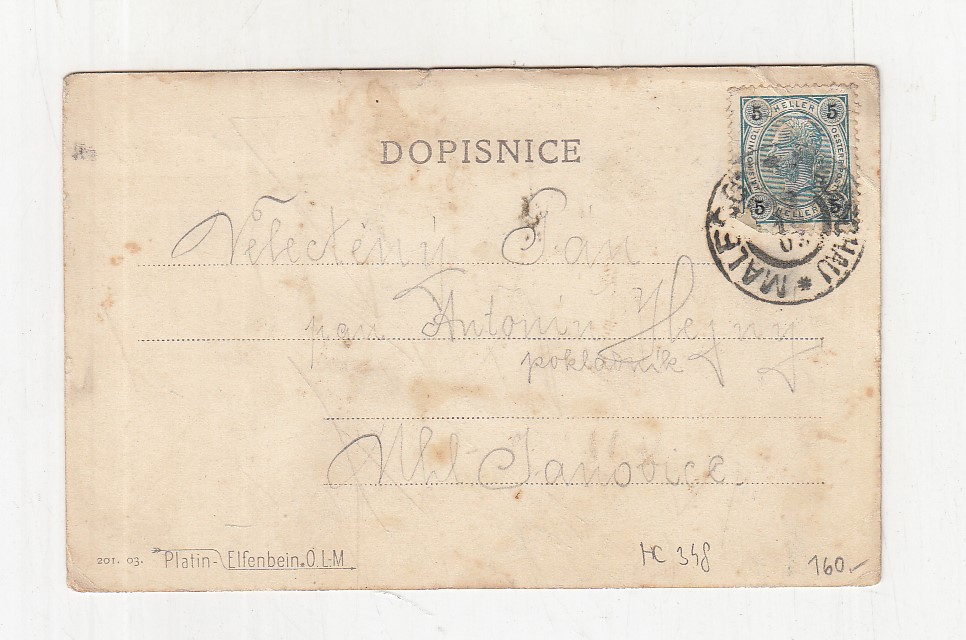 DOPISNICE
5 HELLER 5
5 HELLER 5
MALE HAU *
Velectěný Pán
pan Antonín Hejný
pokladník
Uhl Janovice.
201. 03. Platin-Elfenbein.O.L-M.
HC 348
160.-